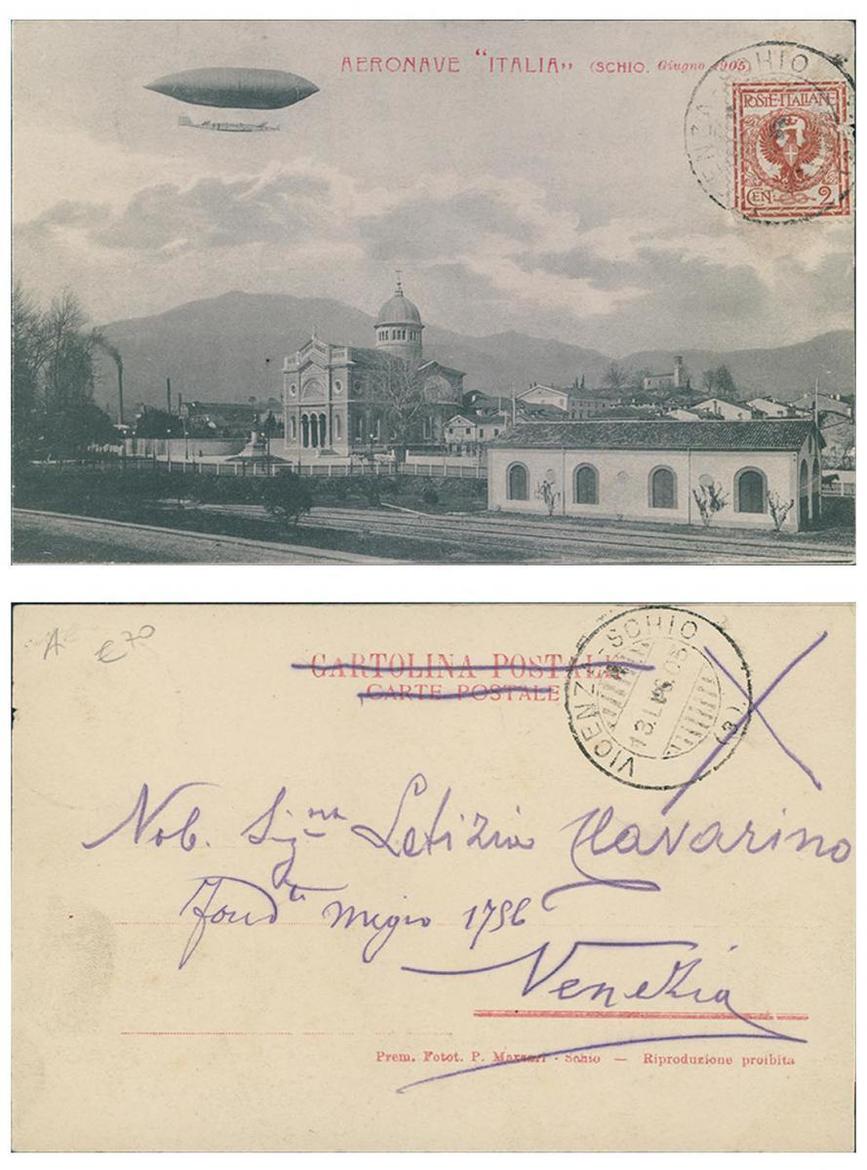 AERONAVE "ITALIA" (SCHIO. Giugno 1905)
POSTE·ITALIANE
CEN 2
A
€70
CARTOLINA POSTALE
CARTE POSTALE
VICENZA-SCHIO
(3)
Nob. Signa Letizia
Fondta Megio 1756
Venezia
Prem. Fotot. P. - Schio — Riproduzione proibita